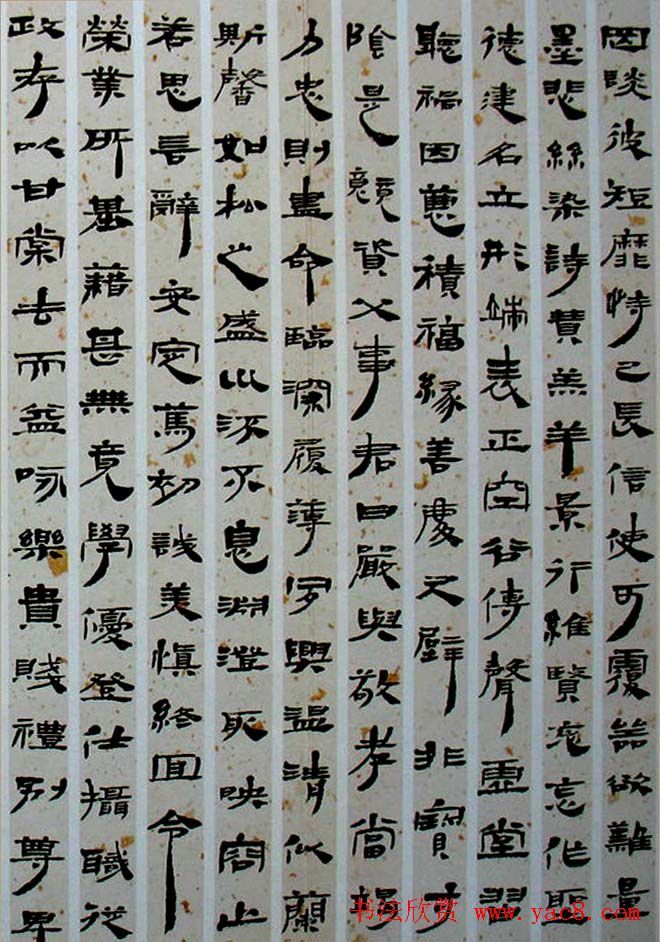 罔談彼短靡恃己長信使可覆器欲難量
墨悲絲染詩贊羔羊景行維賢克念作聖
德建名立形端表正空谷傳聲虛堂習
聽禍因惡積福緣善慶尺璧非寶寸
陰是競資父事君曰嚴與敬孝當竭
力忠則盡命臨深履薄夙興溫清似蘭
斯馨如松之盛川流不息淵澄取映容止
若思言辭安定篤初誠美慎終宜令
榮業所基藉甚無竟學優登仕攝職從
政存以甘棠去而益詠樂貴賤禮別尊卑
书法欣赏 www.yac8.com